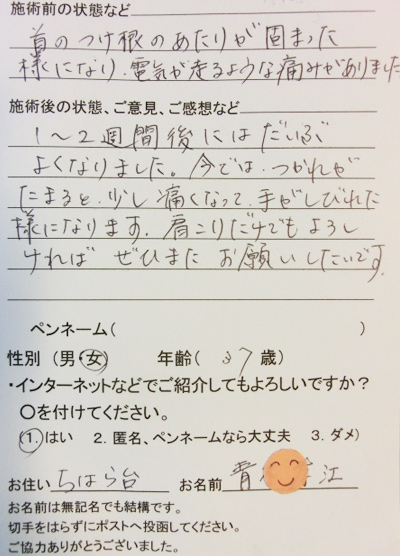 施術前の状態など
首のつけ根のあたりが固まった
様になり、電気が走るような痛みがありました
施術後の状態、ご意見、ご感想など
1〜2週間後にはだいぶ
よくなりました。今では、つかれが
たまると、少し痛くなって、手がしびれた
様になります。肩こりだけでもよろし
ければ ぜひまた お願いしたいです。
ペンネーム( )
性別 (男・女) 年齢( 37 歳)
・インターネットなどでご紹介してもよろしいですか?
○を付けてください。
(1. はい 2. 匿名、ペンネームなら大丈夫 3. ダメ)
お住い ちはら台 お名前 青 江
お名前は無記名でも結構です。
切手をはらずにポストへ投函してください。
ご協力ありがとうございました。